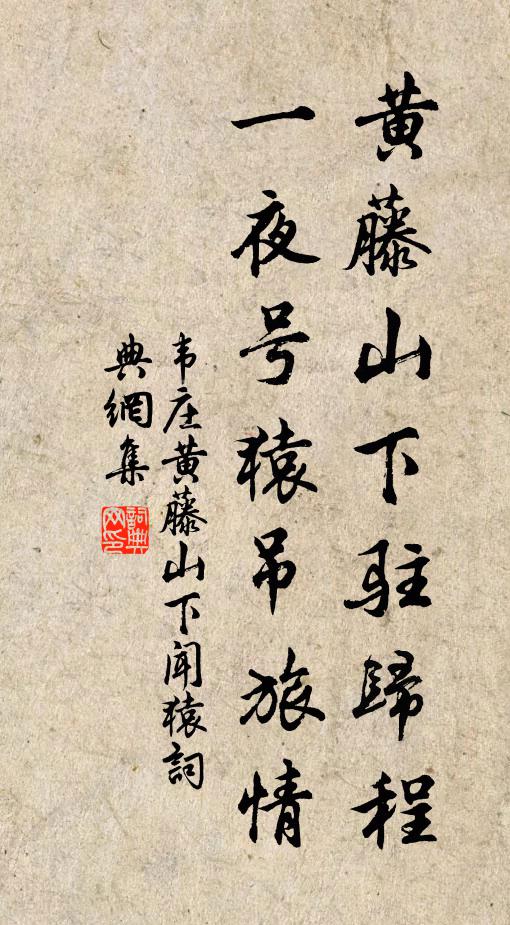 黄藤山下駐歸程
一夜号猿吊旅情
韦庄黄藤山下闻猿詞
典網集
詞典網印